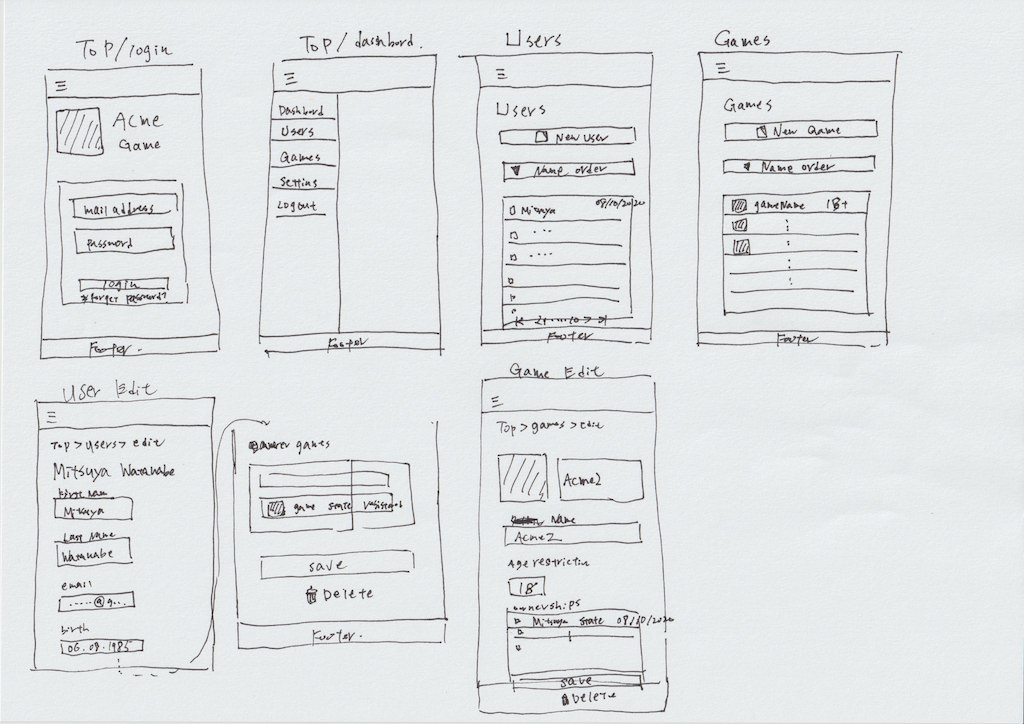 Top/login
Acme
Game
mail address
password
login
*forget password?
Footer.
Top/dashbord.
Dashbord
Users
Games
Setting
Logout
Footer
Users
Users
New User
Name order
Mitsuya 08/10/2020
....
....
Footer
Games
Games
New Game
Name order
gameName 18+
Footer
User Edit
Top > users > edit
Mitsuya Watanabe
First Name
Mitsuya
Last Name
Watanabe
email
.....@g...
birth
06.08.1985
games
game state
save
Delete
Footer.
Game Edit
Top > games > edit
Acme2
Name
Acme2
Age restrictin
18
ownerships
Mitsuya state 08/10/2020
save
Delete